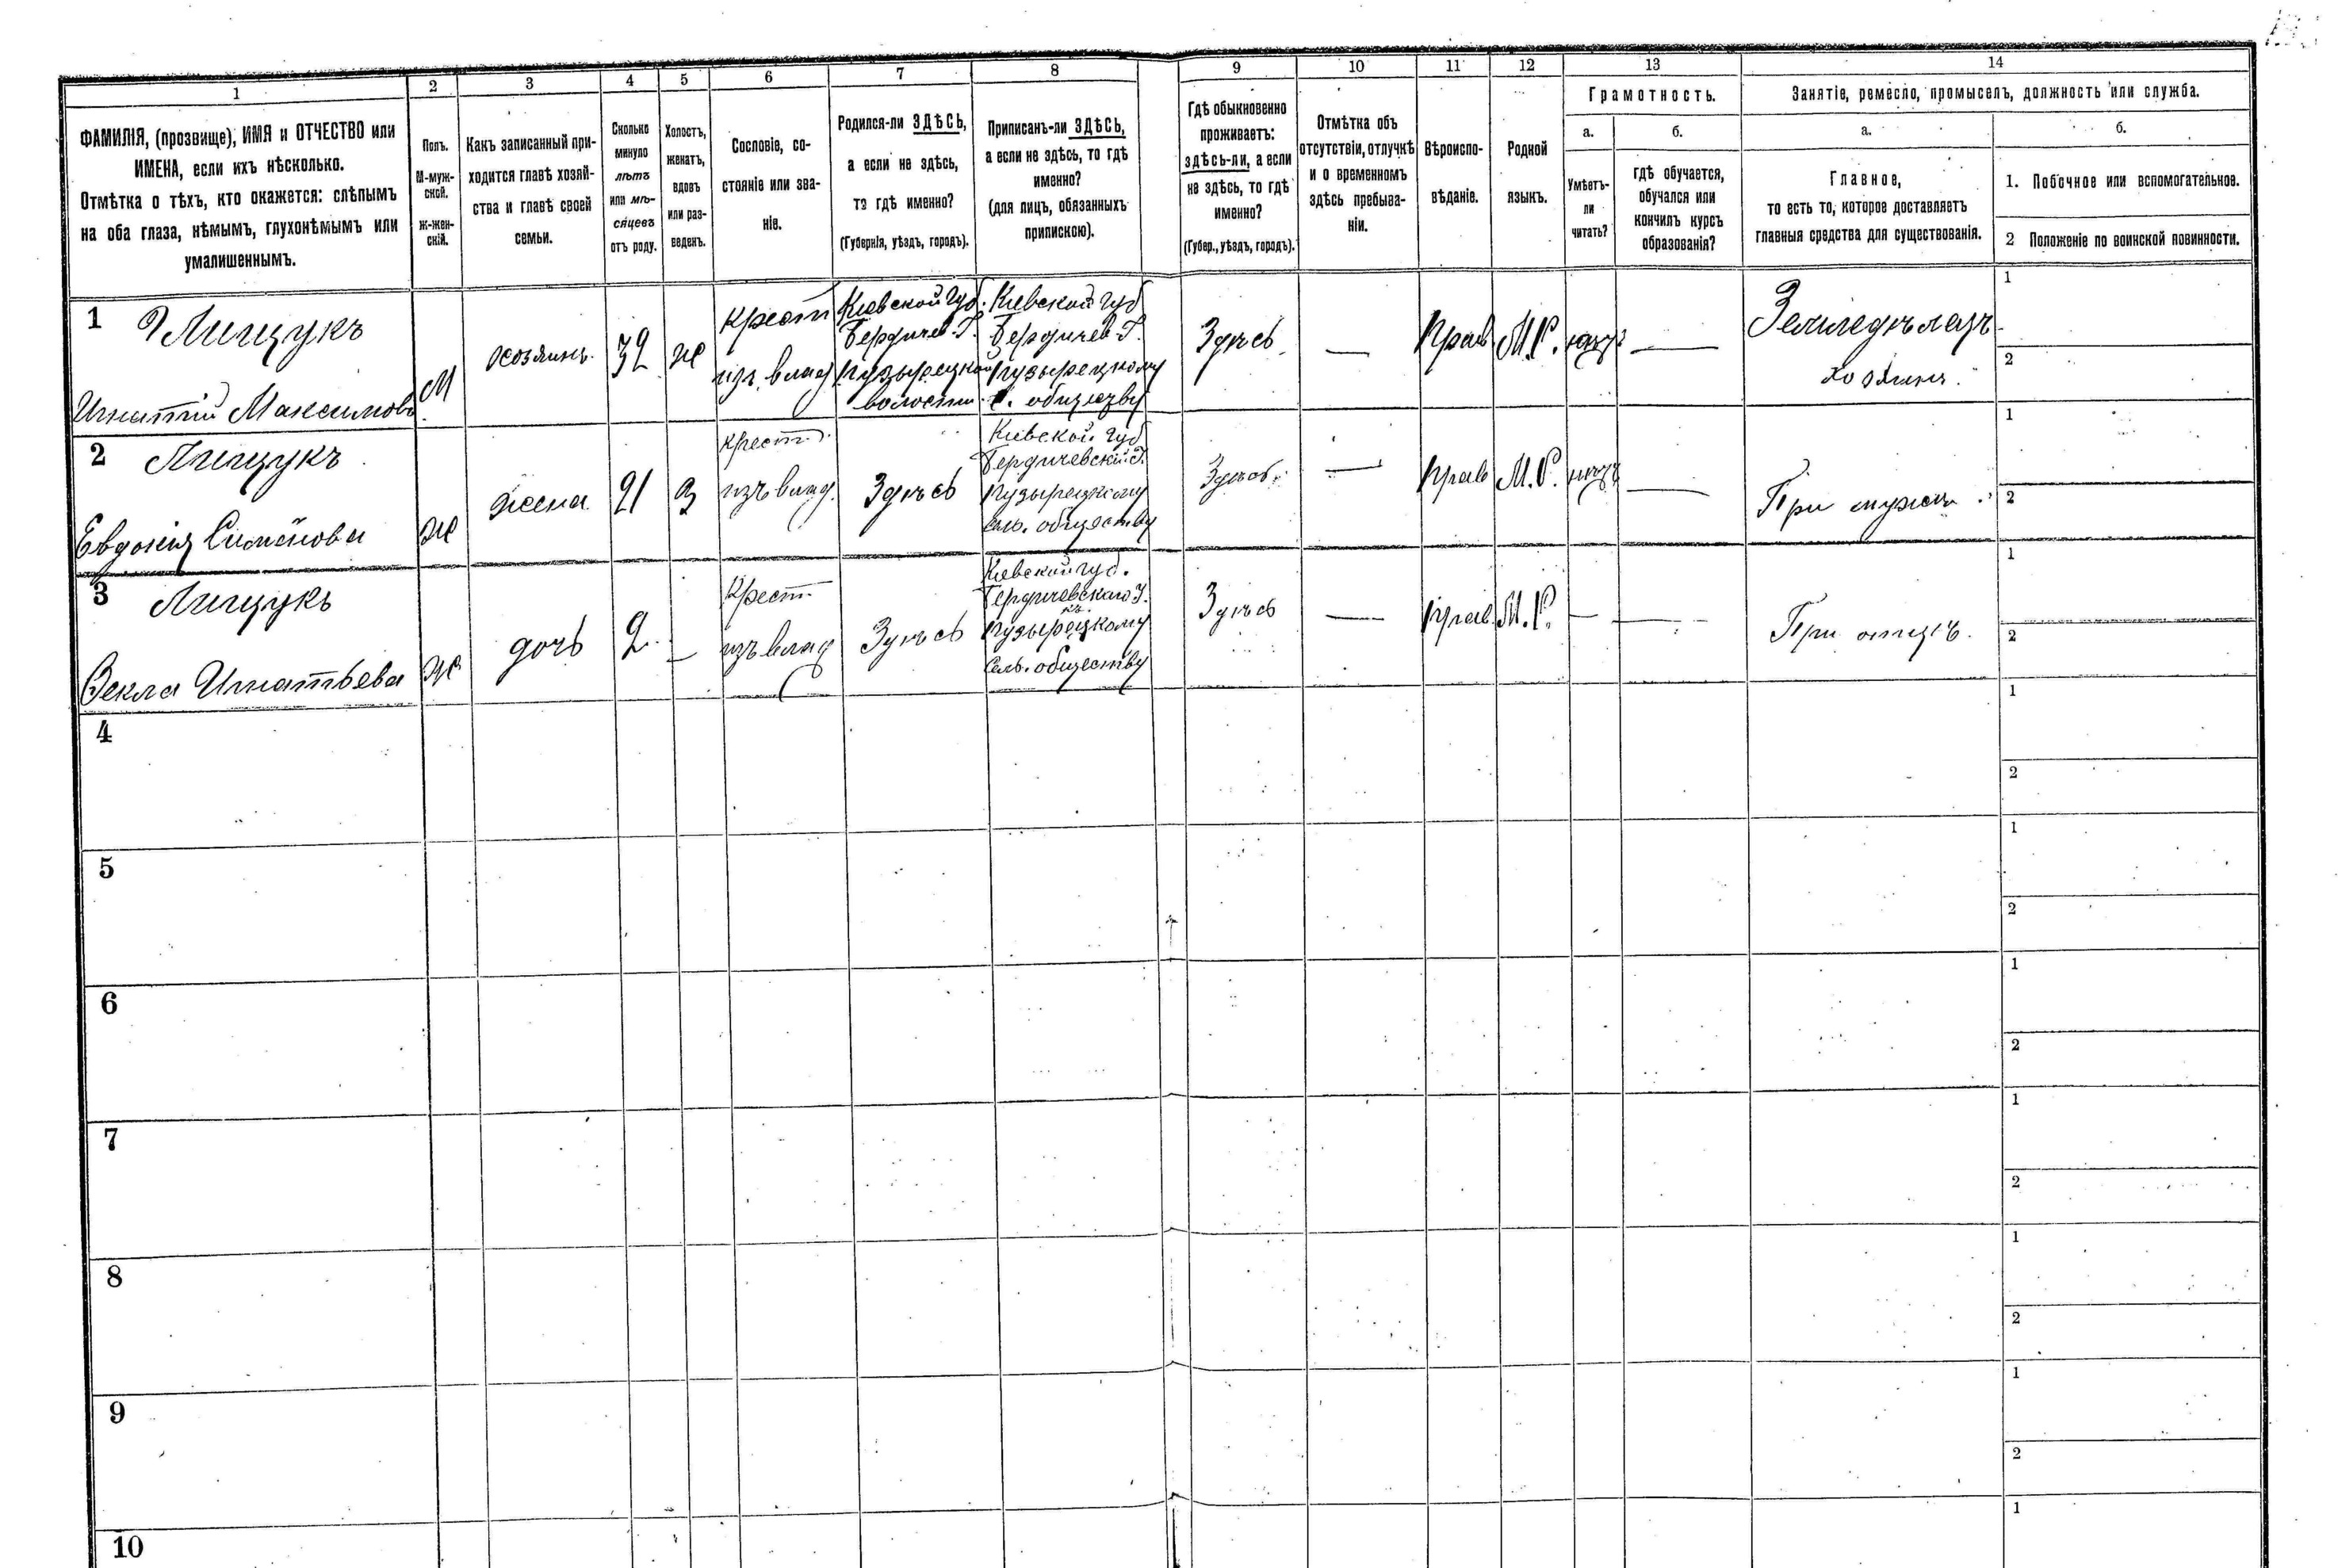 1 2 3 4 5 6 7 8 9 10 11 12 13 14
ФАМИЛІЯ, (прозвище), ИМЯ и ОТЧЕСТВО или
ИМЕНА, если ихъ нѣсколько.
Отмѣтка о тѣхъ, кто окажется: слѣпымъ
на оба глаза, нѣмымъ, глухонѣмымъ или
умалишеннымъ.
Полъ.
М-муж-
ской.
ж-жен-
скій.
Какъ записанный при-
ходится главѣ хозяй-
ства и главѣ своей
семьи.
Сколько
минуло
лѣтъ
или мѣ-
сяцевъ
отъ роду.
Холостъ,
женатъ,
вдовъ
или раз-
веденъ.
Сословіе, со-
стояніе или зва-
ніе.
Родился-ли ЗДѢСЬ,
а если не здѣсь,
то гдѣ именно?
(Губернія, уѣздъ, городъ).
Приписанъ-ли ЗДѢСЬ,
а если не здѣсь, то гдѣ
именно?
(для лицъ, обязанныхъ
припискою).
Гдѣ обыкновенно
проживаетъ:
здѣсь-ли, а если
не здѣсь, то гдѣ
именно?
(Губер., уѣздъ, городъ).
Отмѣтка объ
отсутствіи, отлучкѣ
и о временномъ
здѣсь пребыва-
ніи.
Вѣроиспо-
вѣданіе.
Родной
языкъ.
Грамотность.
а.
Умѣетъ-
ли
читать?
б.
гдѣ обучается,
обучался или
кончилъ курсъ
образованія?
Занятіе, ремесло, промыселъ, должность или служба.
а.
Главное,
то есть то, которое доставляетъ
главныя средства для существованія.
б.
1. Побочное или вспомогательное.
2 Положеніе по воинской повинности.
1
Лищукъ
Игнатій Максимовъ
М
хозяинъ
32
ж
Крест
изъ влад
Кіевской Губ.
Бердичев. У.
Пузырецкой
волости
Кіевской Губ
Бердичев. У.
Пузырецкому
с. обществу
Здѣсь
—
Прав
М.Р.
—
Земледѣлецъ
хозяинъ
1
2
2
Лищукъ
Евдокія Симонова
ж
жена
21
З
Крест.
изъ влад.
Здѣсь
Кіевской Губ
Бердичевскаго У.
Пузырецкому
сель. обществу
Здѣсь
—
Прав
М.Р.
—
При мужѣ
1
2
3
Лищукъ
Векла Игнатьева
ж
дочь
2
—
Крест.
изъ влад
Здѣсь
Кіевской губ.
Бердичевскаго У.
Пузырецкому
Сель. обществу
Здѣсь
—
Прав.
М.Р.
—
—
При отцѣ.
1
2
4
1
2
5
1
2
6
1
2
7
1
2
8
1
2
9
1
2
10
1